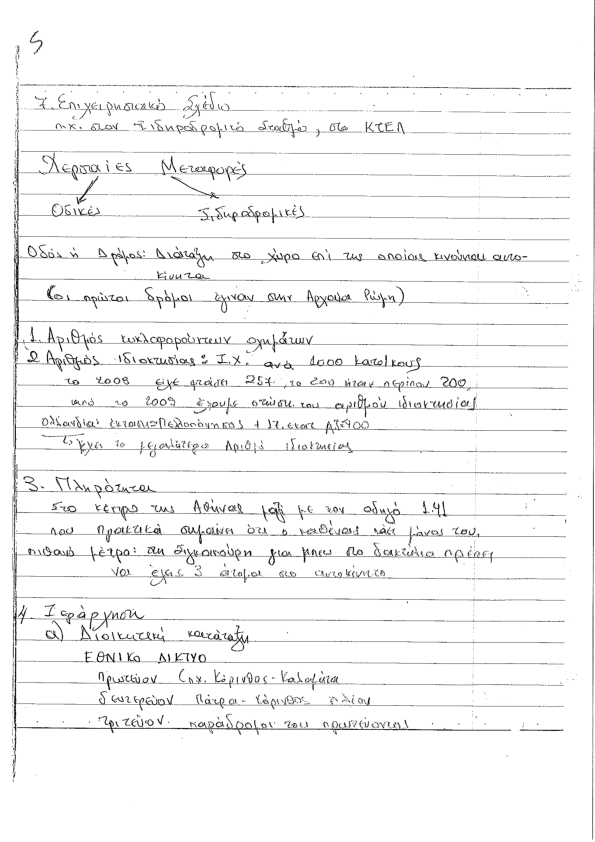 5
7. Επιχειρηστακό Σχέδιο
π.χ. στον Σιδηροδρομικό Σταθμό, στο ΚΤΕΛ
Χερσαίες Μεταφορές
Οδικές Σιδηροδρομικές
Οδός ή Δρόμος: Διάταξη στο χώρο επί της οποίας κινούνται αυτο-
κίνητα
(οι πρώτοι δρόμοι έγιναν στην Αρχαία Ρώμη)
1. Αριθμός κυκλοφορούντων οχημάτων
2 Αριθμός ιδιοκτησίας: Ι.Χ. ανά 1000 κατοίκους
το 2008 είχε φτάσει 257, το 200 ήταν περίπου 200,
από το 2009 έχουμε πτώση του αριθμού ιδιοκτησίας
Ολλανδία: έκταση=Πελοπόννησος + 17.εκατ ΑΙ=400
έχει το μεγαλύτερο Αριθμό ιδιοκτησίας
3. Πληρότητα
στο κέντρο της Αθήνας μαζί με τον οδηγό 1.41
που πρακτικά σημαίνει ότι ο καθένας πάει μόνος του,
πιθανό μέτρο: στη Σιγκαπούρη για μπεις στο δακτύλιο πρέπει
να έχεις 3 άτομα στο αυτοκίνητο
4. Ιεράρχηση
α) Διοικητική κατάταξη
ΕΘΝΙΚΟ ΔΙΚΤΥΟ
Πρωτεύον (πχ. Κόρινθος - Καλαμάτα
δευτερεύον Πάτρα - Κόρινθος πλέον
τριτεύον. παράδρομοι του πρωτεύοντος